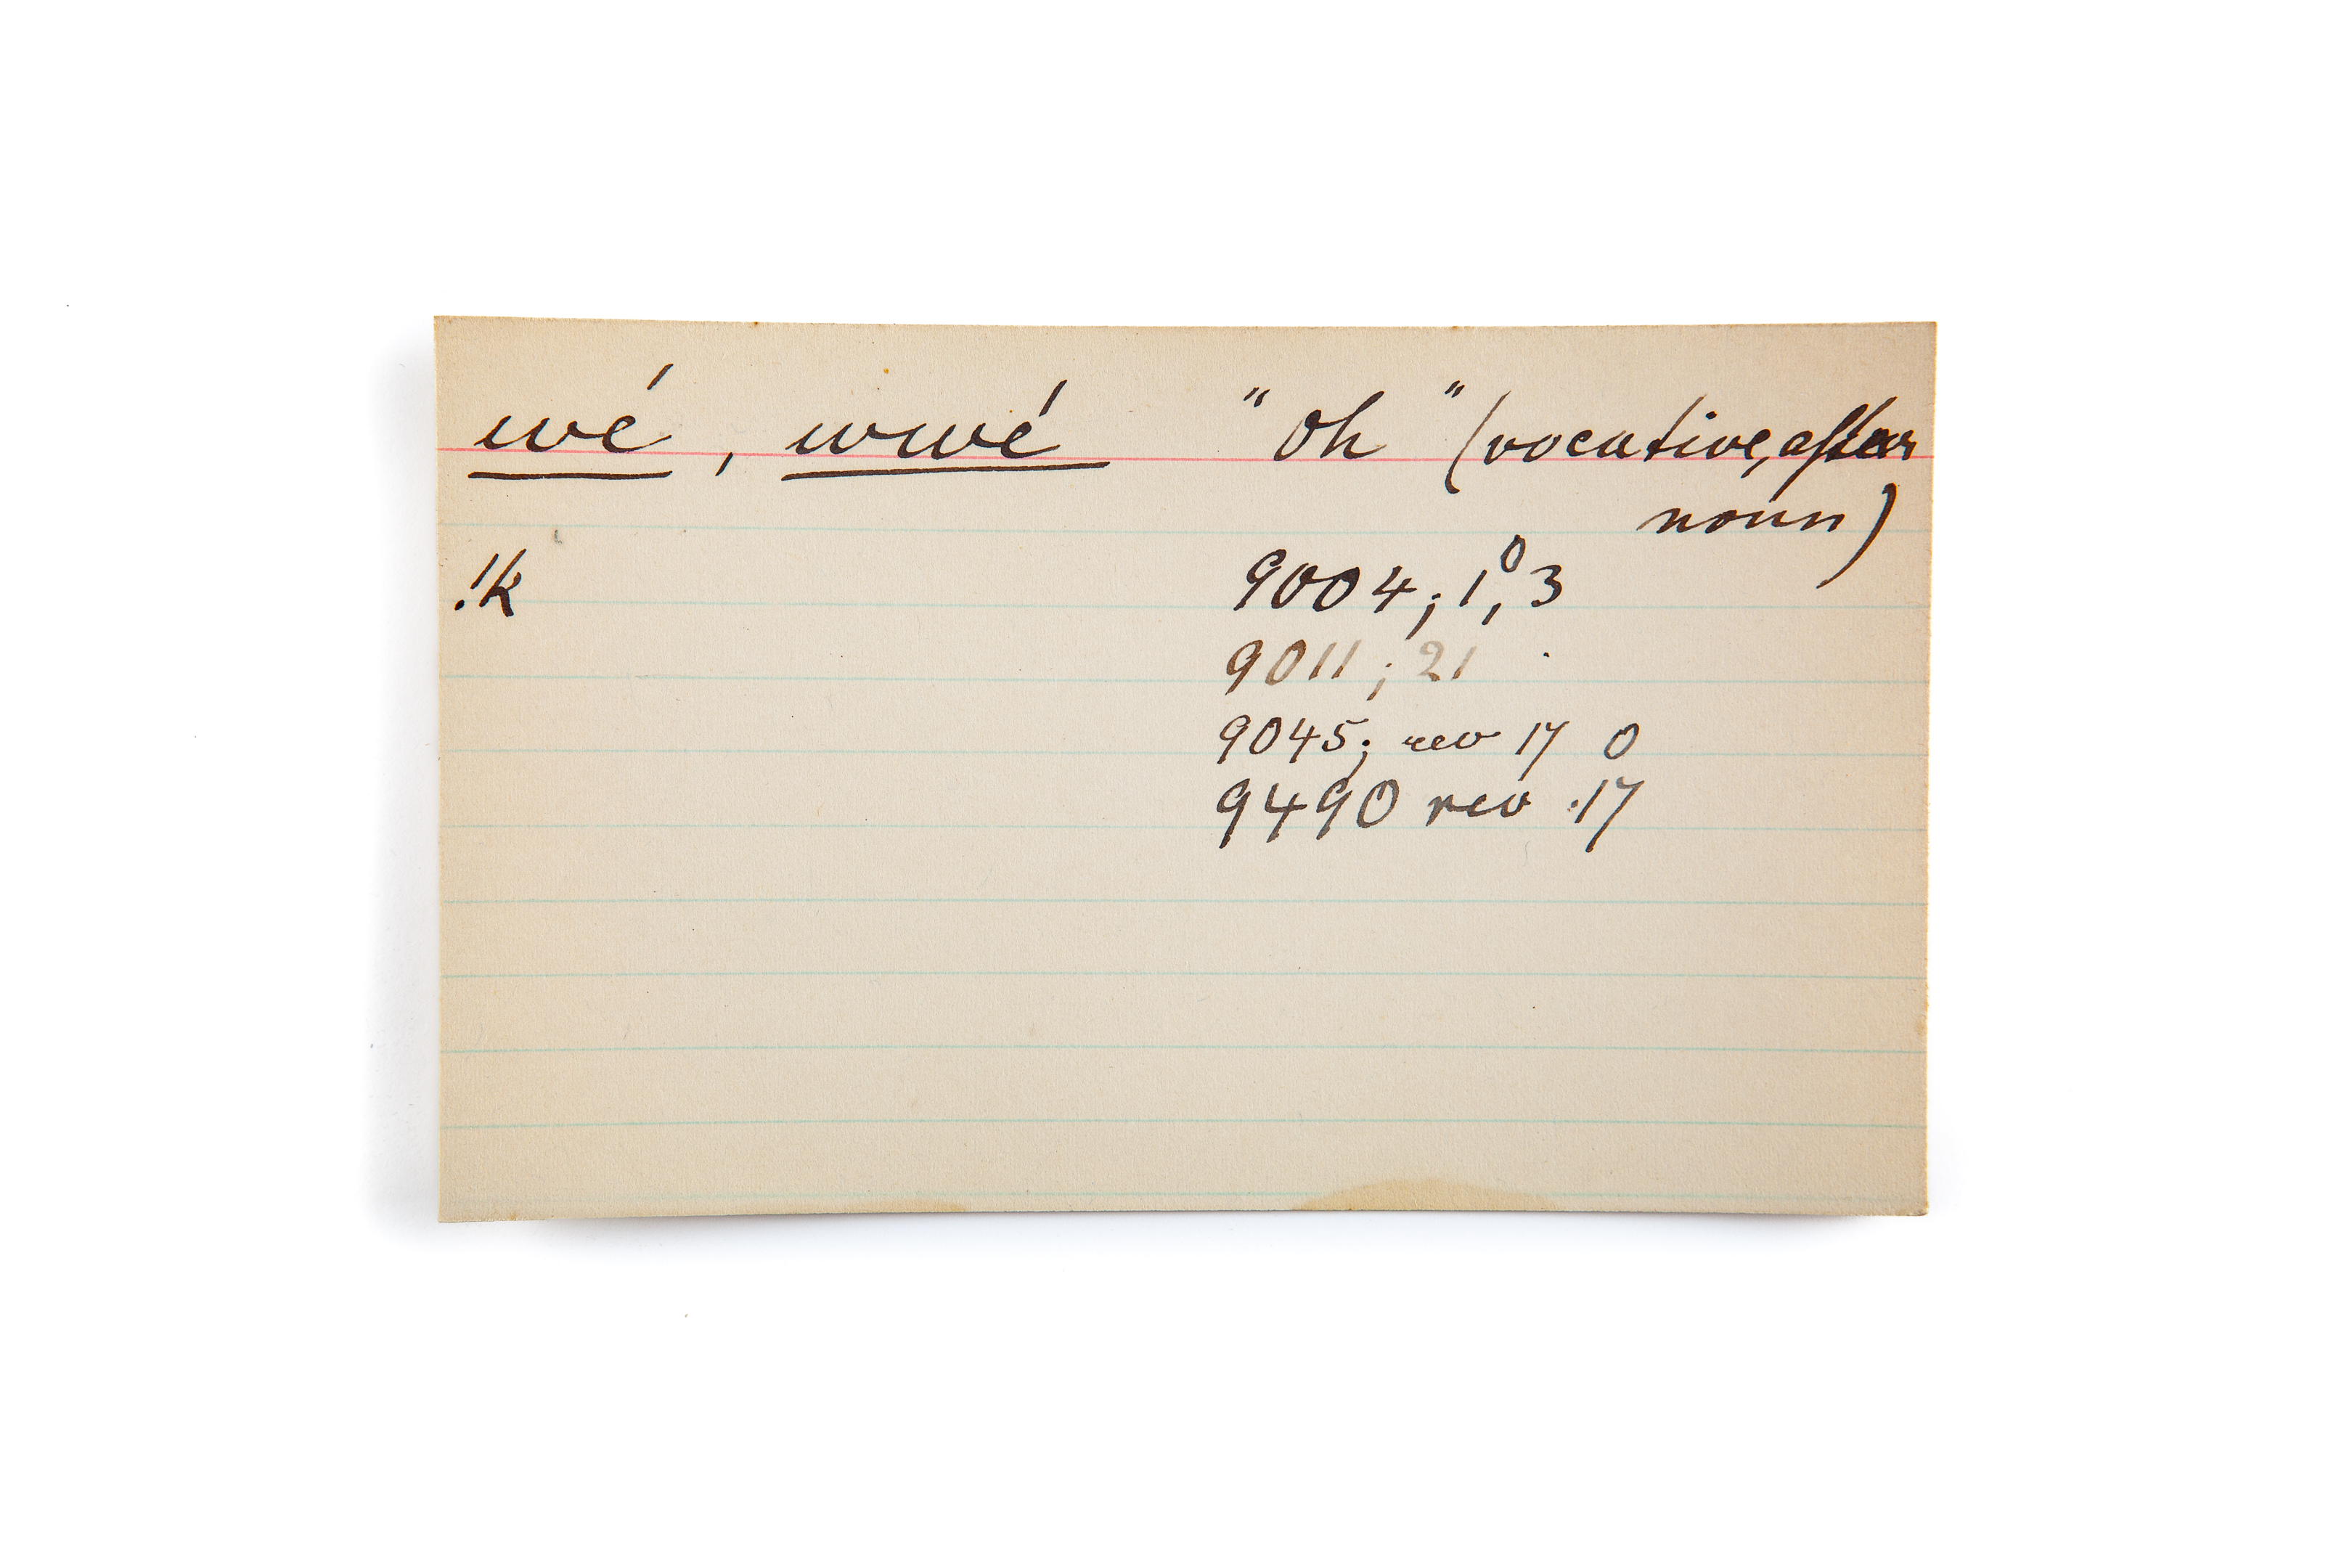 wé, wwé "Oh" (vocative, after
noun)
!k 9004; 1,⁰ 3
9011; 21
9045; rev 17 0
9490 rev 17